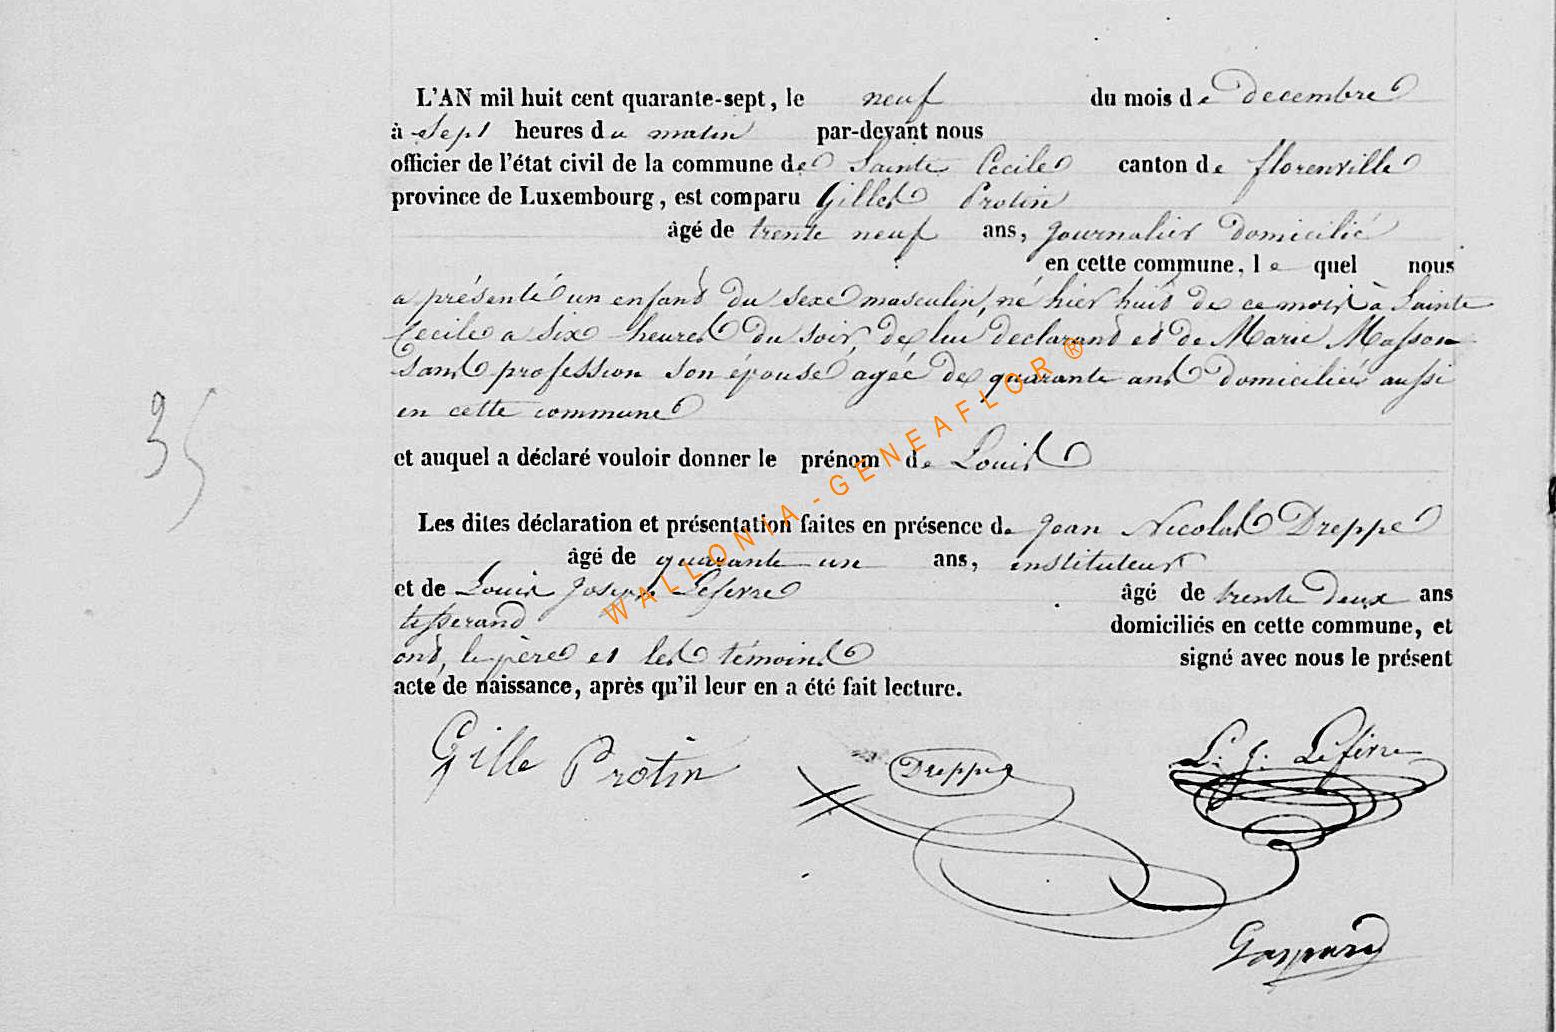 L'AN mil huit cent quarante-sept, le neuf du mois de decembre
à sept heures du matin par-devant nous
officier de l'état civil de la commune de Sainte Cecile canton de florenville
province de Luxembourg, est comparu Gilles Protin
âgé de trente neuf ans, journalier domicilié
en cette commune, le quel nous
a présenté un enfant du sexe masculin, né hier huit de ce mois à Sainte
Cecile a six heures du soir, de lui declarant et de Marie Masson
sans profession son épouse agée de quarante ans domiciliés aussi
en cette commune
35
et auquel a déclaré vouloir donner le prénom de Louis
Les dites déclaration et présentation faites en présence de Jean Nicolas Dreppe
âgé de quarante un ans, instituteur
et de Louis Joseph Lefevre âgé de trente deux ans
tisserand domiciliés en cette commune, et
ont, le père et les témoins signé avec nous le présent
acte de naissance, après qu'il leur en a été fait lecture.
Gille Protin Dreppe L. J. Lefevre
Gaspard
WALLONIA-GENEAFLOR ®